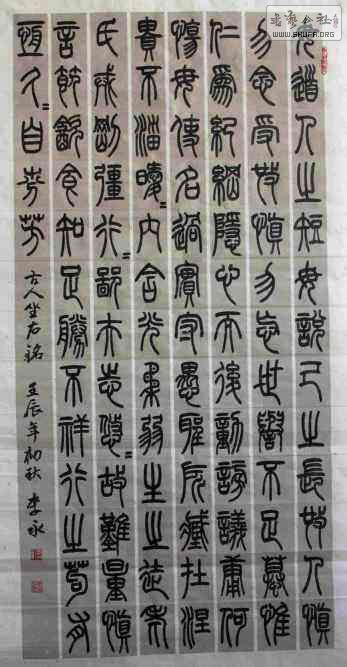 无道人之短毋說己之長施人慎
勿念受施慎勿忘世譽不足慕惟
仁爲紀綱隱心而後動謗議庸何
傷毋使名過實守愚聖所臧在涅
貴不淄曖〻內含光柔弱生之徒老
氏戒剛彊行〻鄙夫志悠〻故難量慎
言節飲食知足勝不祥行之苟有
恆久〻自芬芳 古人坐右銘 壬辰年初秋 李永
WWW.SHUFA.ORG